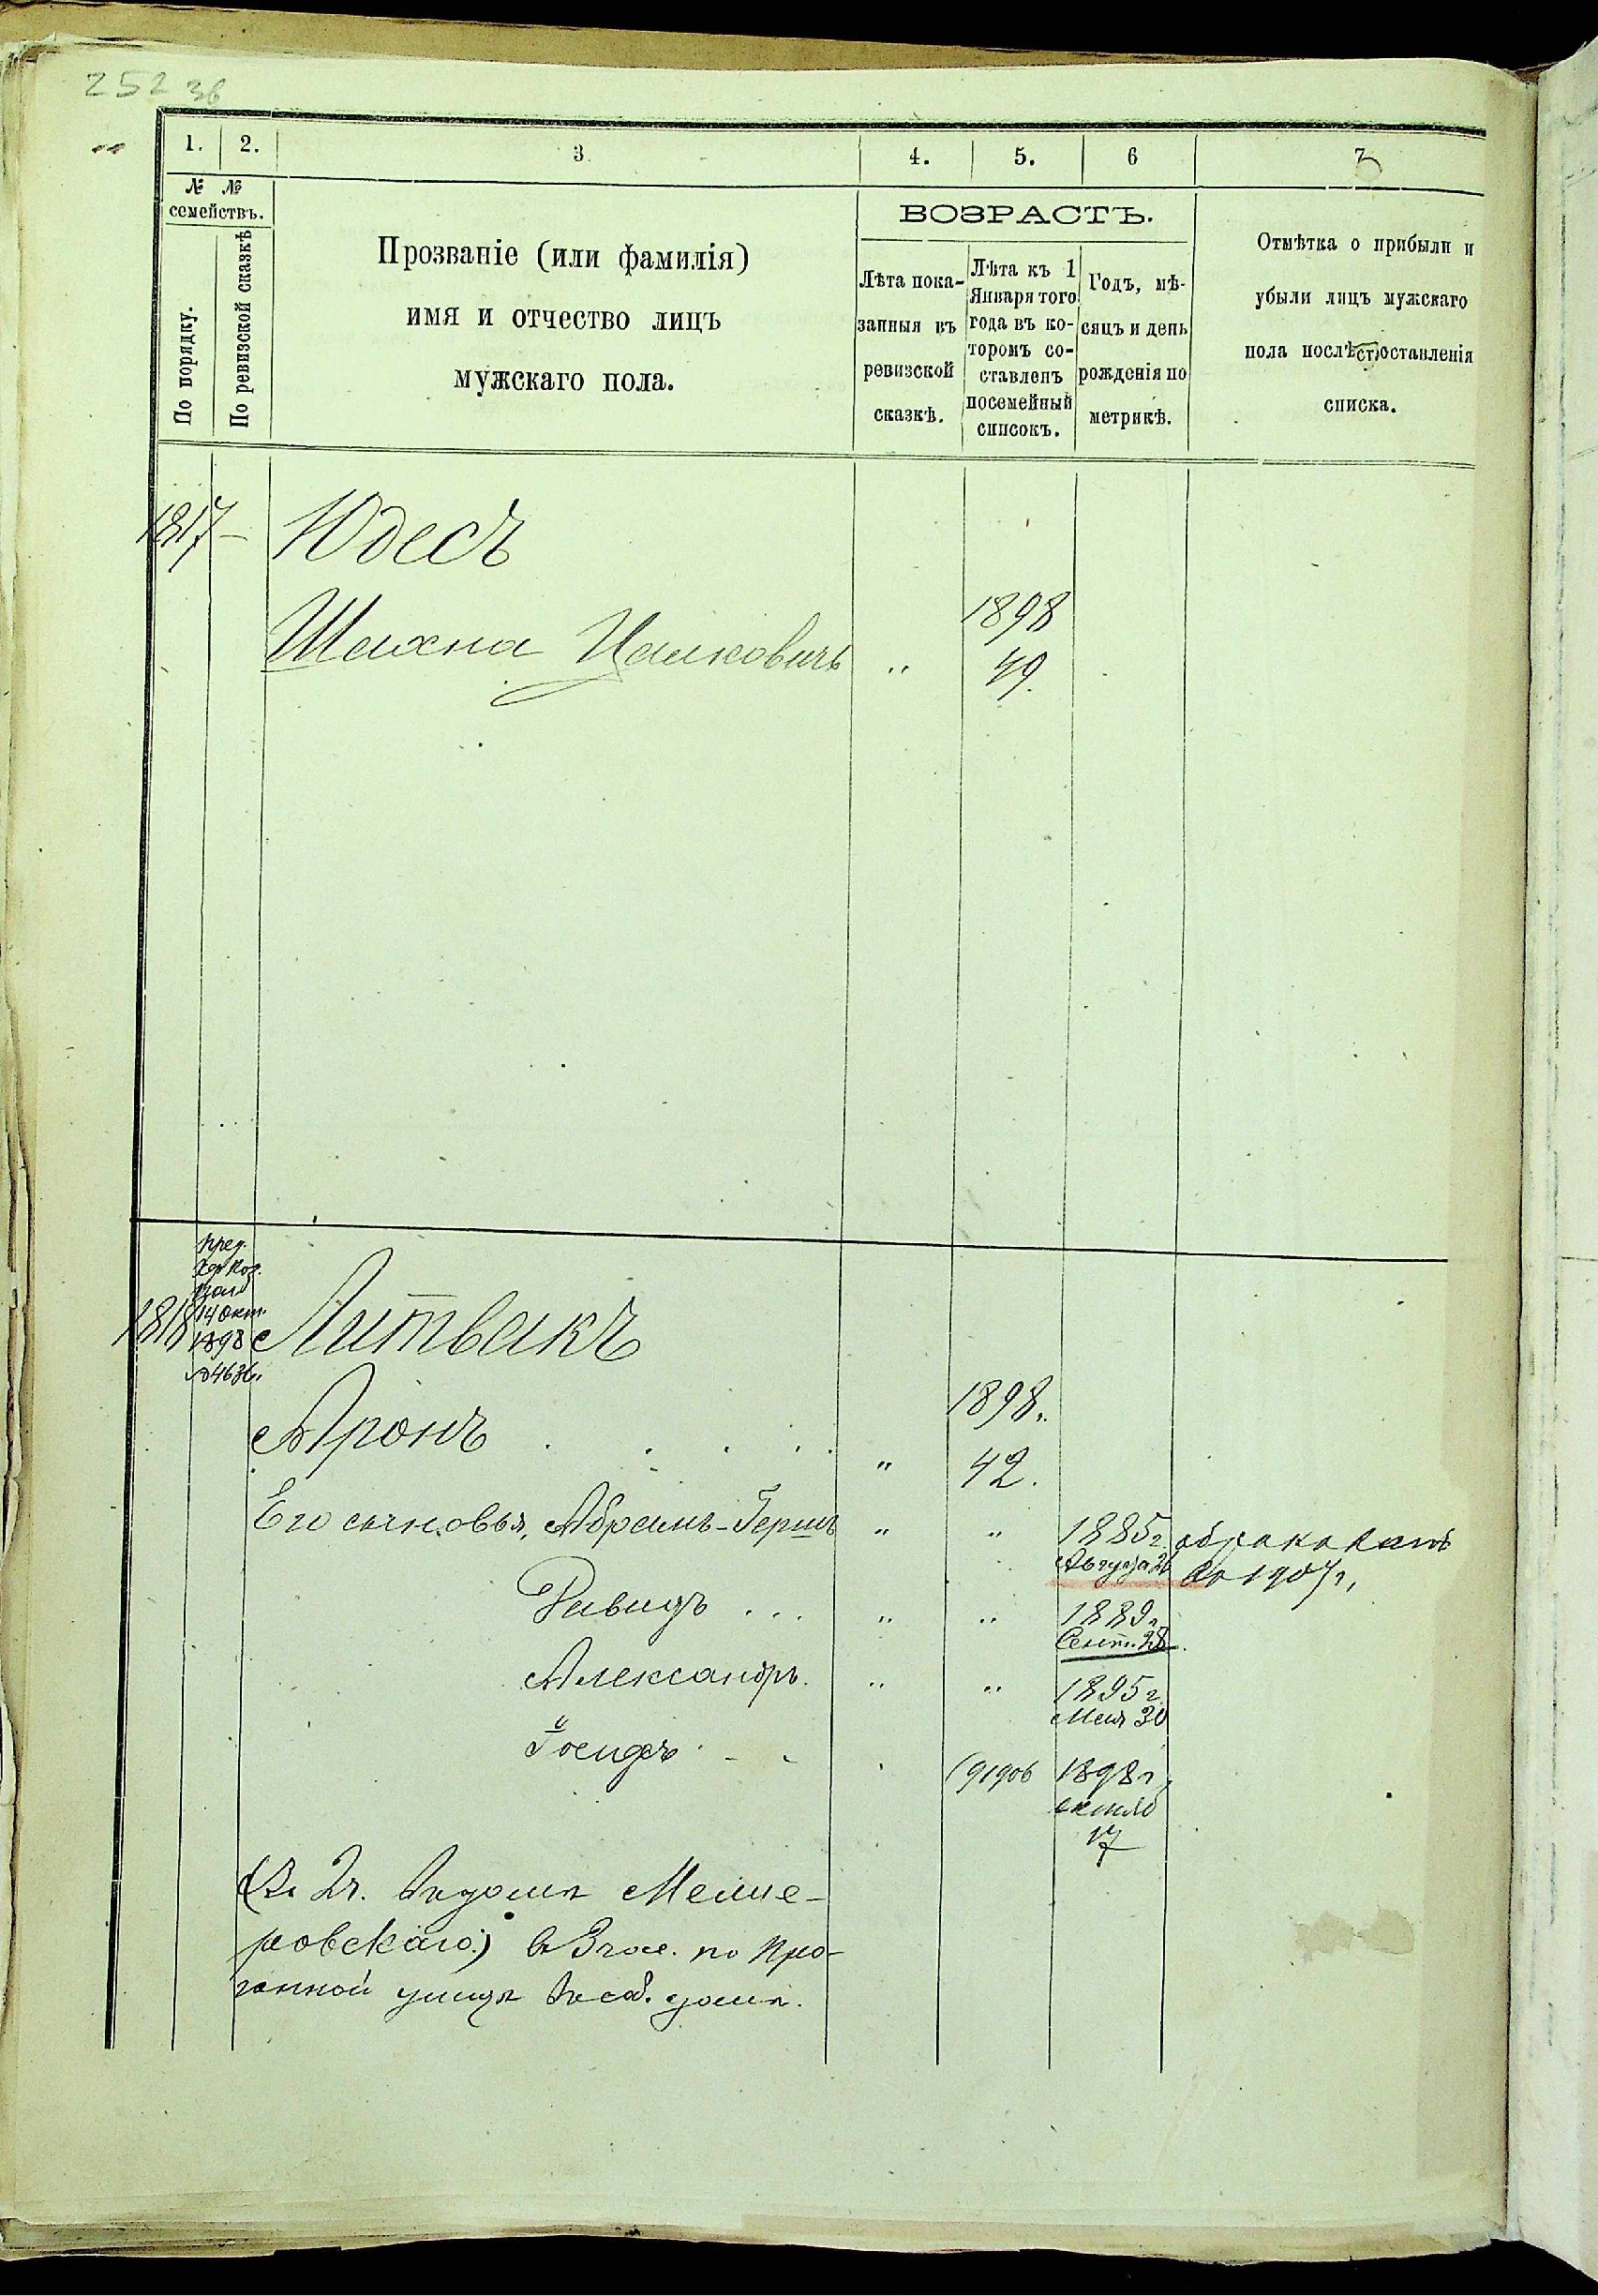 252 36
1. 2. 3 4. 5. 6 7
№ № семействъ.
По порядку.
По ревизской сказкѣ
Прозваніе (или фамилія)
имя и отчество лицъ
мужскаго пола.
ВОЗРАСТЪ.
Лѣта пока-
занныя въ
ревизской
сказкѣ.
Лѣта къ 1
Января того
года въ ко-
торомъ со-
ставленъ
посемейный
списокъ.
Годъ, мѣ-
сяцъ и день
рожденія по
метрикѣ.
Отмѣтка о прибыли и
убыли лицъ мужскаго
пола послѣ составленія
списка.
1817 – Юдесъ
1898
Шахна Цалковичъ „ 49.
пред.
14 окт.
1898
№ 4636
1818 Литвакъ
1898.
Аронъ . . . . . „ 42.
Его сыновья, Абрамъ-Гершъ „ „ 1885 г. обракованъ
Августа 26 въ 1907 г.
Давидъ . . . „ „ 1889 г.
Сент. 28.
Александръ. „ „ 1895 г.
Мая 30
Іосифъ - - 1898 г.
17
(Въ 2 ч. въ домѣ Меще-
ровскаго) въ 3 час. по Про-
гонной улицѣ въ соб. домѣ.